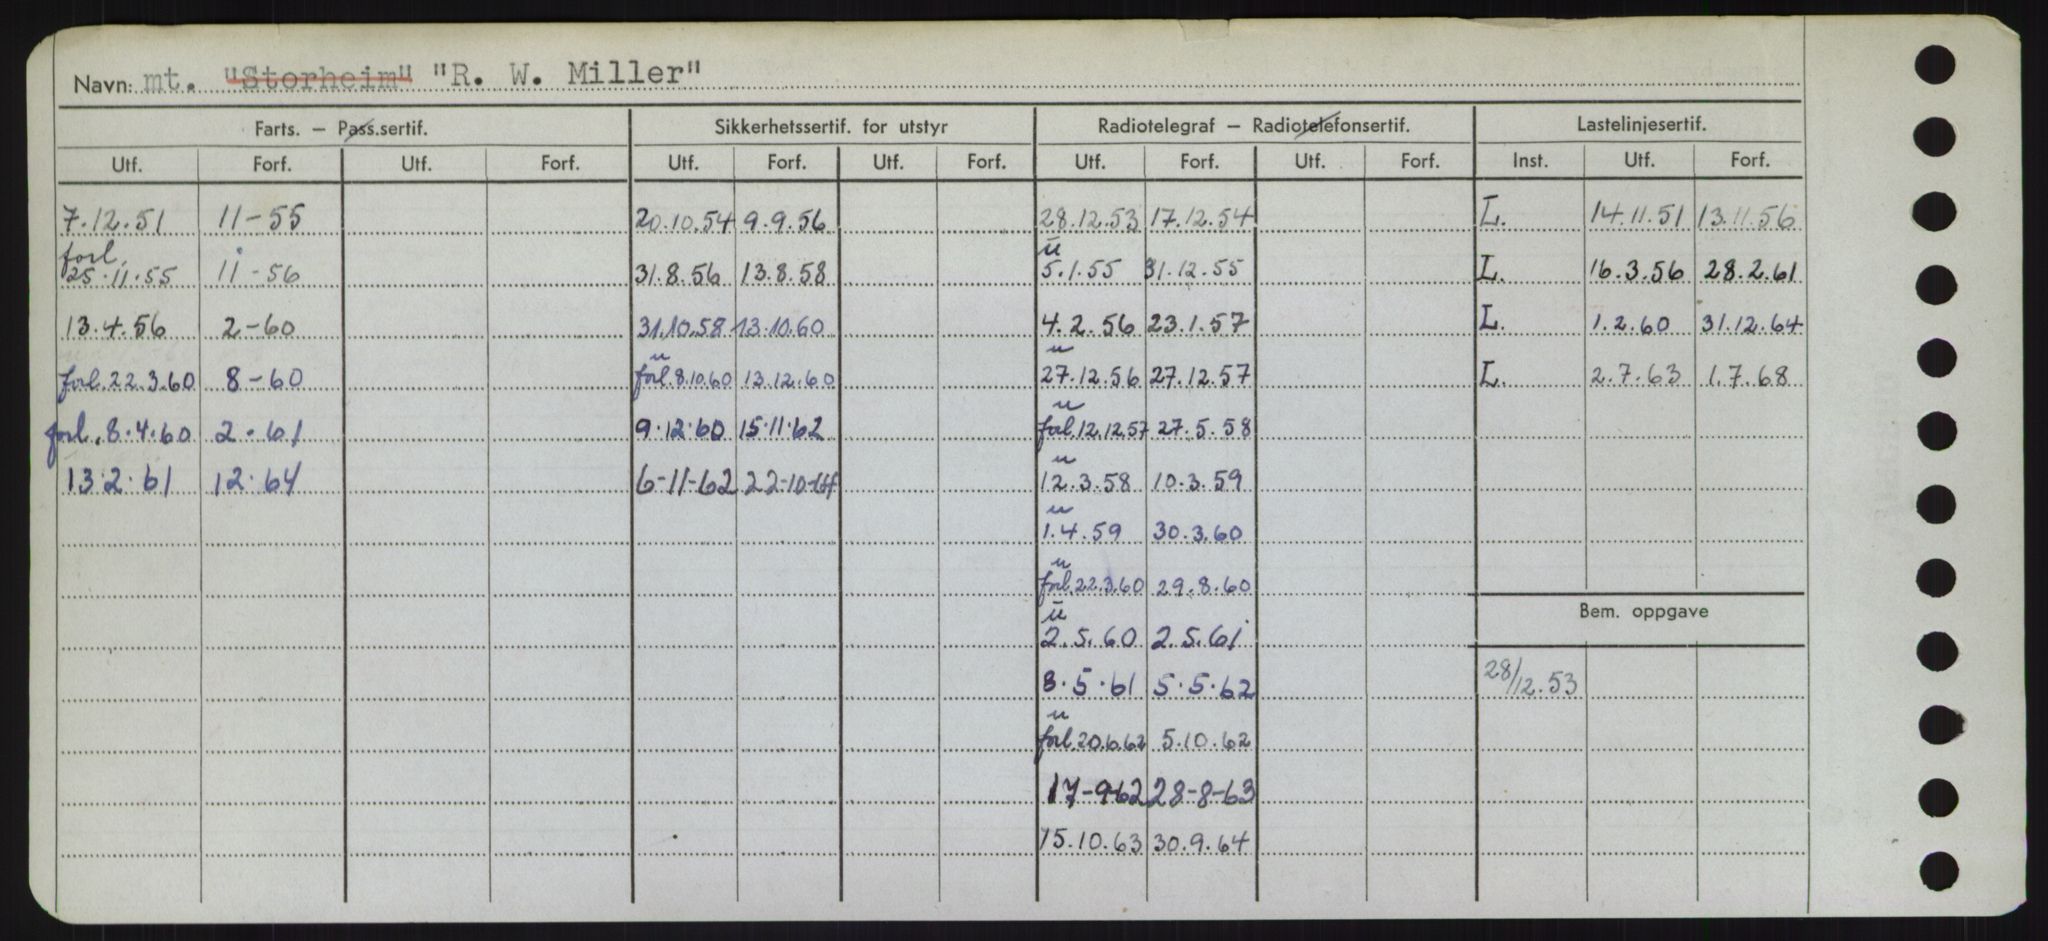 Navn: mt. "Storheim" "R. W. Miller"
Farts. – Pass.sertif. Sikkerhetssertif. for utstyr Radiotelegraf – Radiotelefonsertif. Lastelinjesertif.
Utf. Forf. Utf. Forf. Utf. Forf. Utf. Forf. Utf. Forf. Utf. Forf. Inst. Utf. Forf.
7.12.51 11-55 20.10.54 9.9.56 28.12.53 17.12.54 L. 14.11.51 13.11.56
forl. u
25.11.55 11-56 31.8.56 13.8.58 5.1.55 31.12.55 L. 16.3.56 28.2.61
13.4.56 2-60 31.10.58 13.10.60 4.2.56 23.1.57 L. 1.2.60 31.12.64
u u
forl. 22.3.60 8-60 forl. 8.10.60 13.12.60 27.12.56 27.12.57 L. 2.7.63 1.7.68
u
forl. 8.4.60 2.61 9.12.60 15.11.62 forl. 12.12.57 27.5.58
u
13.2.61 12.64 6-11-62 22-10-64 12.3.58 10.3.59
u
1.4.59 30.3.60
u
forl. 22.3.60 29.8.60
u
2.5.60 2.5.61
Bem. oppgave
8.5.61 5.5.62 28/12.53
u
forl. 20.6.62 5.10.62
17-9-62 28-8-63
15.10.63 30.9.64